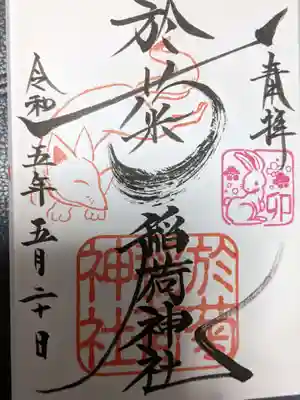 奉拝
卯
於菊稲荷神社
於菊
稲荷
神社
令和五年五月二十日